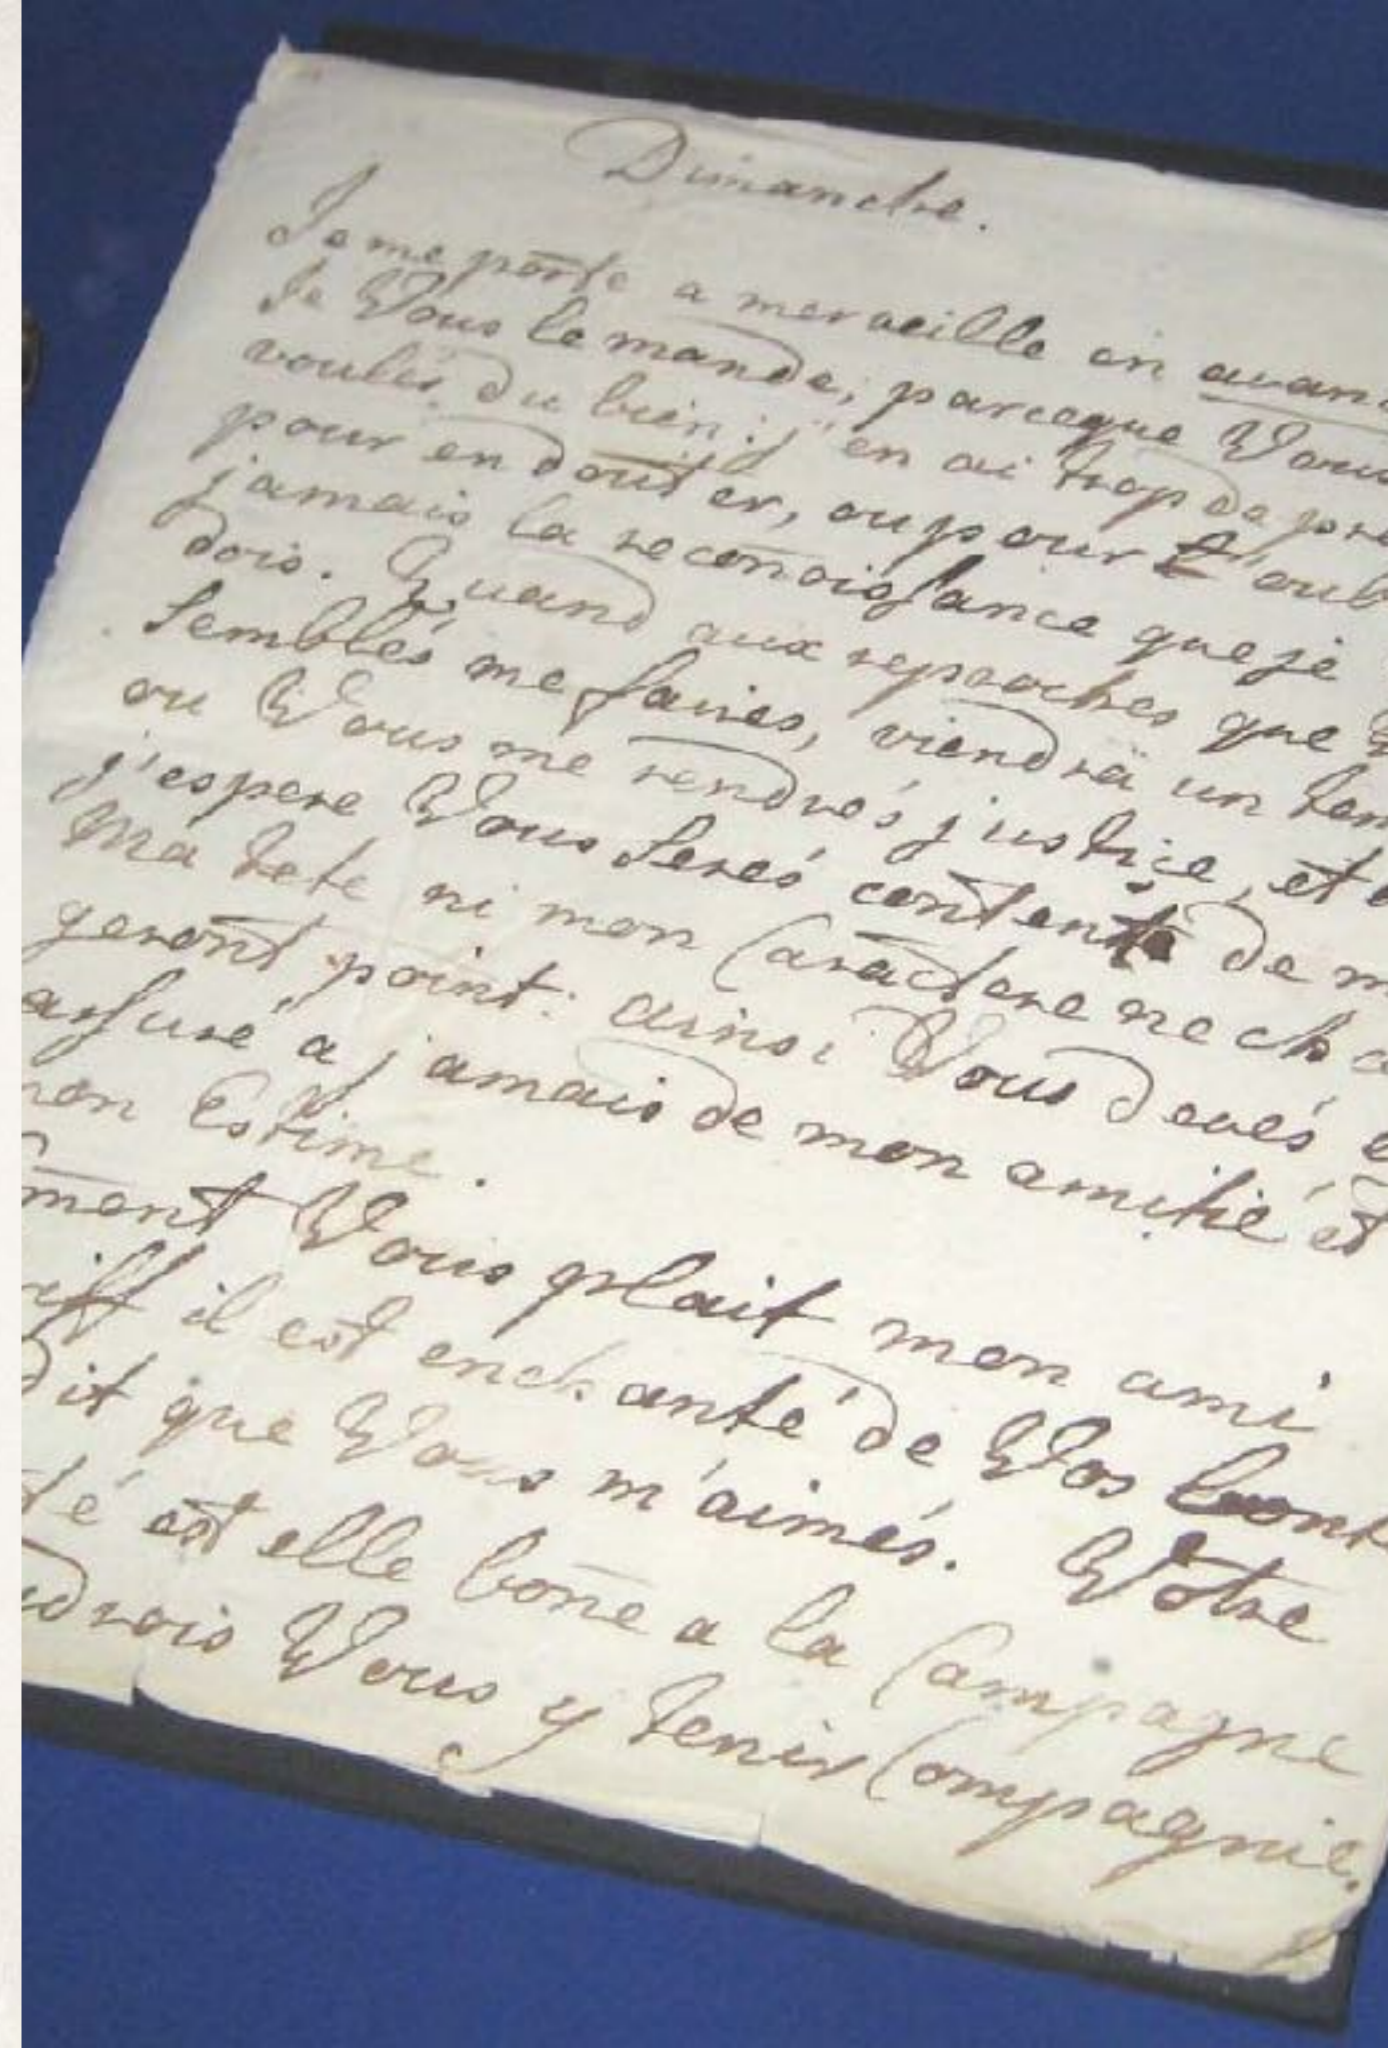 Dimanche.
Je me porte a merveille en avan
Je Vous le mande, parceque Vous
voulés du bien: j'en ai trop de pre
pour en douter, ou pour l'oub
jamais la reconoissance que je
dois. Quand aux reproches que
Semblés me faires, viendra un tem
ou Vous me rendrés justice, et
j'espere Vous Serés content de m
Ma tete ni mon Caractere ne cha
geront point: ainsi Vous devés e
assuré a jamais de mon amitié et
mon Estime.
ment Vous plait mon ami
riff il est enchanté de Vos bont
dit que Vous m'aimés. Votre
té est elle bone a la Campagne
udrois Vous y tenir Compagnie.